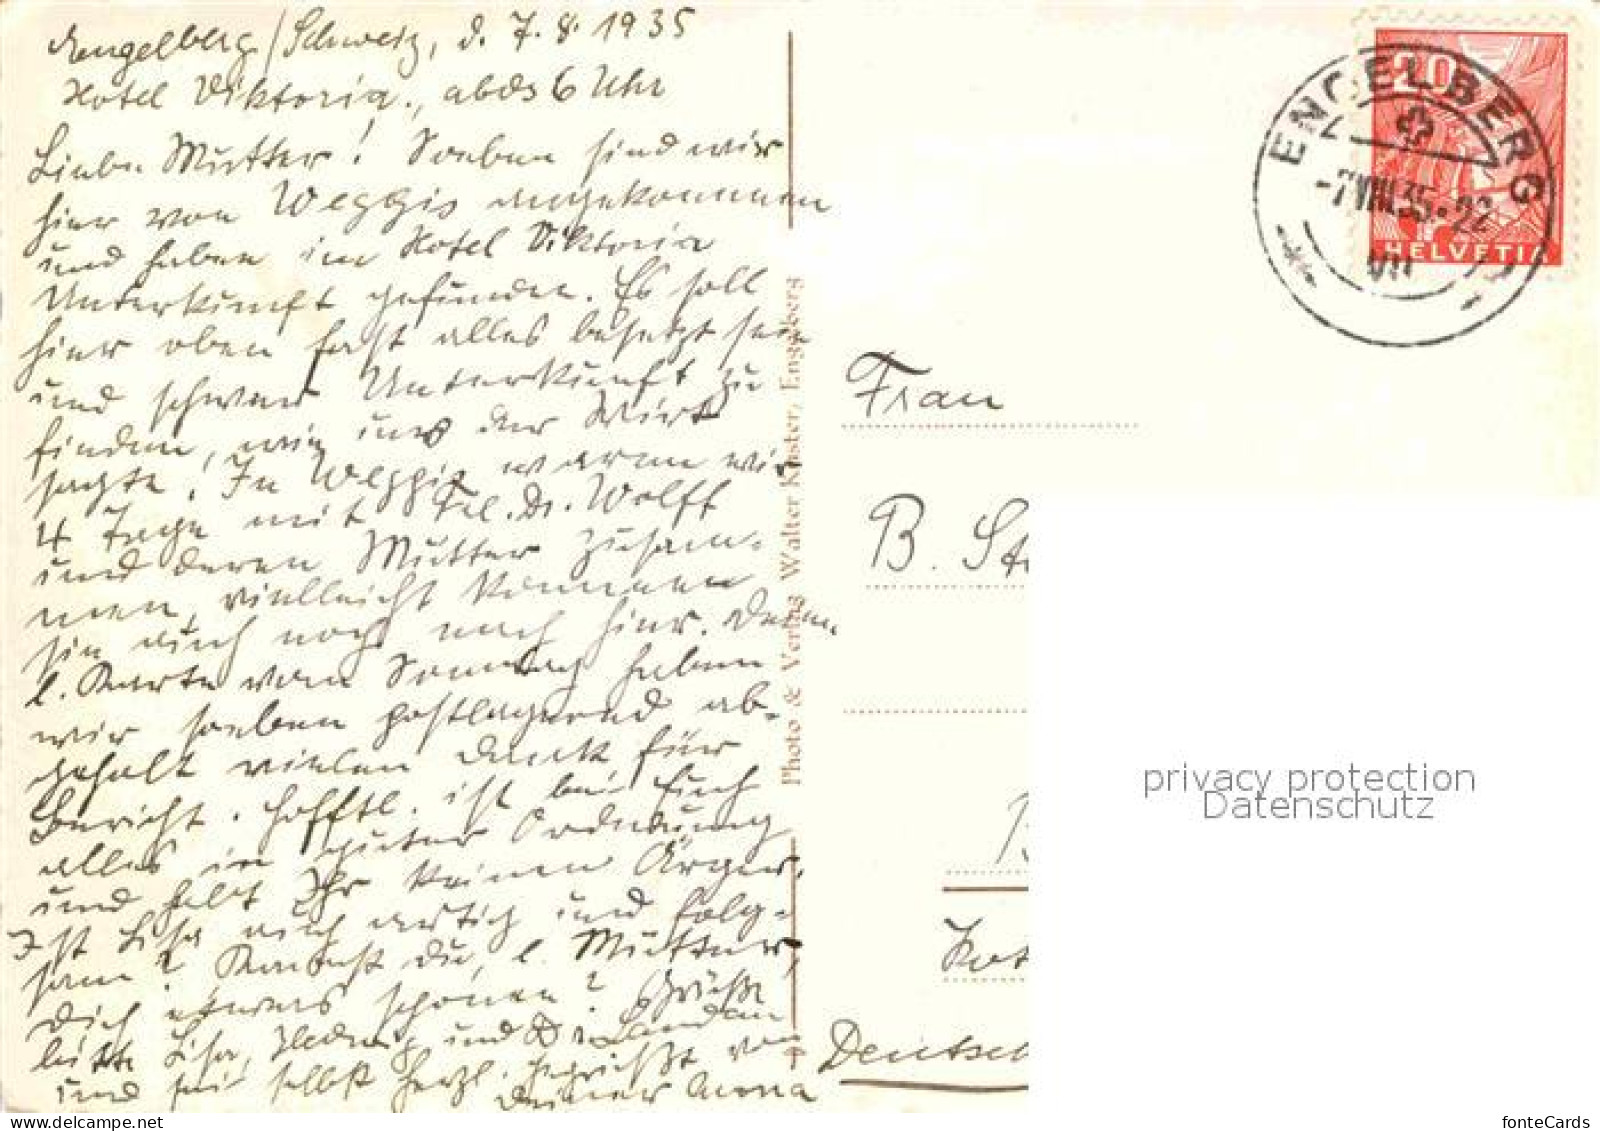 Engelberg/Schweiz, d. 7.8.1935
Hotel Viktoria., abds 6 Uhr
Liebe Mutter! Soeben sind wir
hier von Weggis angekommen
und haben im Hotel Viktoria
Unterkunft gefunden. Es soll
hier oben fast alles besetzt sein
und schwer Unterkunft zu
finden, wie uns der Wirt
sagte. In Weggis waren wir
4 Tage mit Frl. Dr. Wolff
und deren Mutter zusam-
men, vielleicht kommen
sie auch noch nach hier. Deine
l. Karte vom Sonntag haben
wir soeben postlagernd ab-
geholt vielen Dank für
Bericht. Hofftl. ist bei Euch
alles in guter Ordnung
und habt Ihr keinen Ärger.
Ist Lisa auch artig und folg-
sam? Kannst du, l. Mutter,
Dich etwas schonen? Grüße
bitte Lisa, Hedwig und
und sei selbst herzl. gegrüßt von
Deiner Anna
Photo & Verlag Walter Küster, Engelberg
ENGELBERG
-7.VIII.35-22
20
HELVETIA
Frau
B. St
B
Kot
Deutsch
privacy protection
Datenschutz
fonteCards